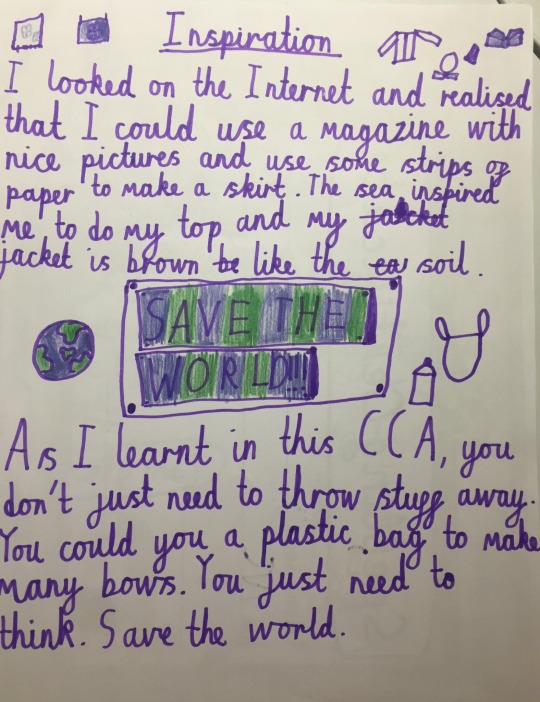 Inspiration
I looked on the Internet and realised
that I could use a magazine with
nice pictures and use some strips of
paper to make a skirt. The sea inspired
me to do my top and my jacket
jacket is brown be like the ea soil.
SAVE THE
WORLD!!!
As I learnt in this CCA, you
don't just need to throw stuff away.
You could you a plastic bag to make
many bows. You just need to
think. Save the world.